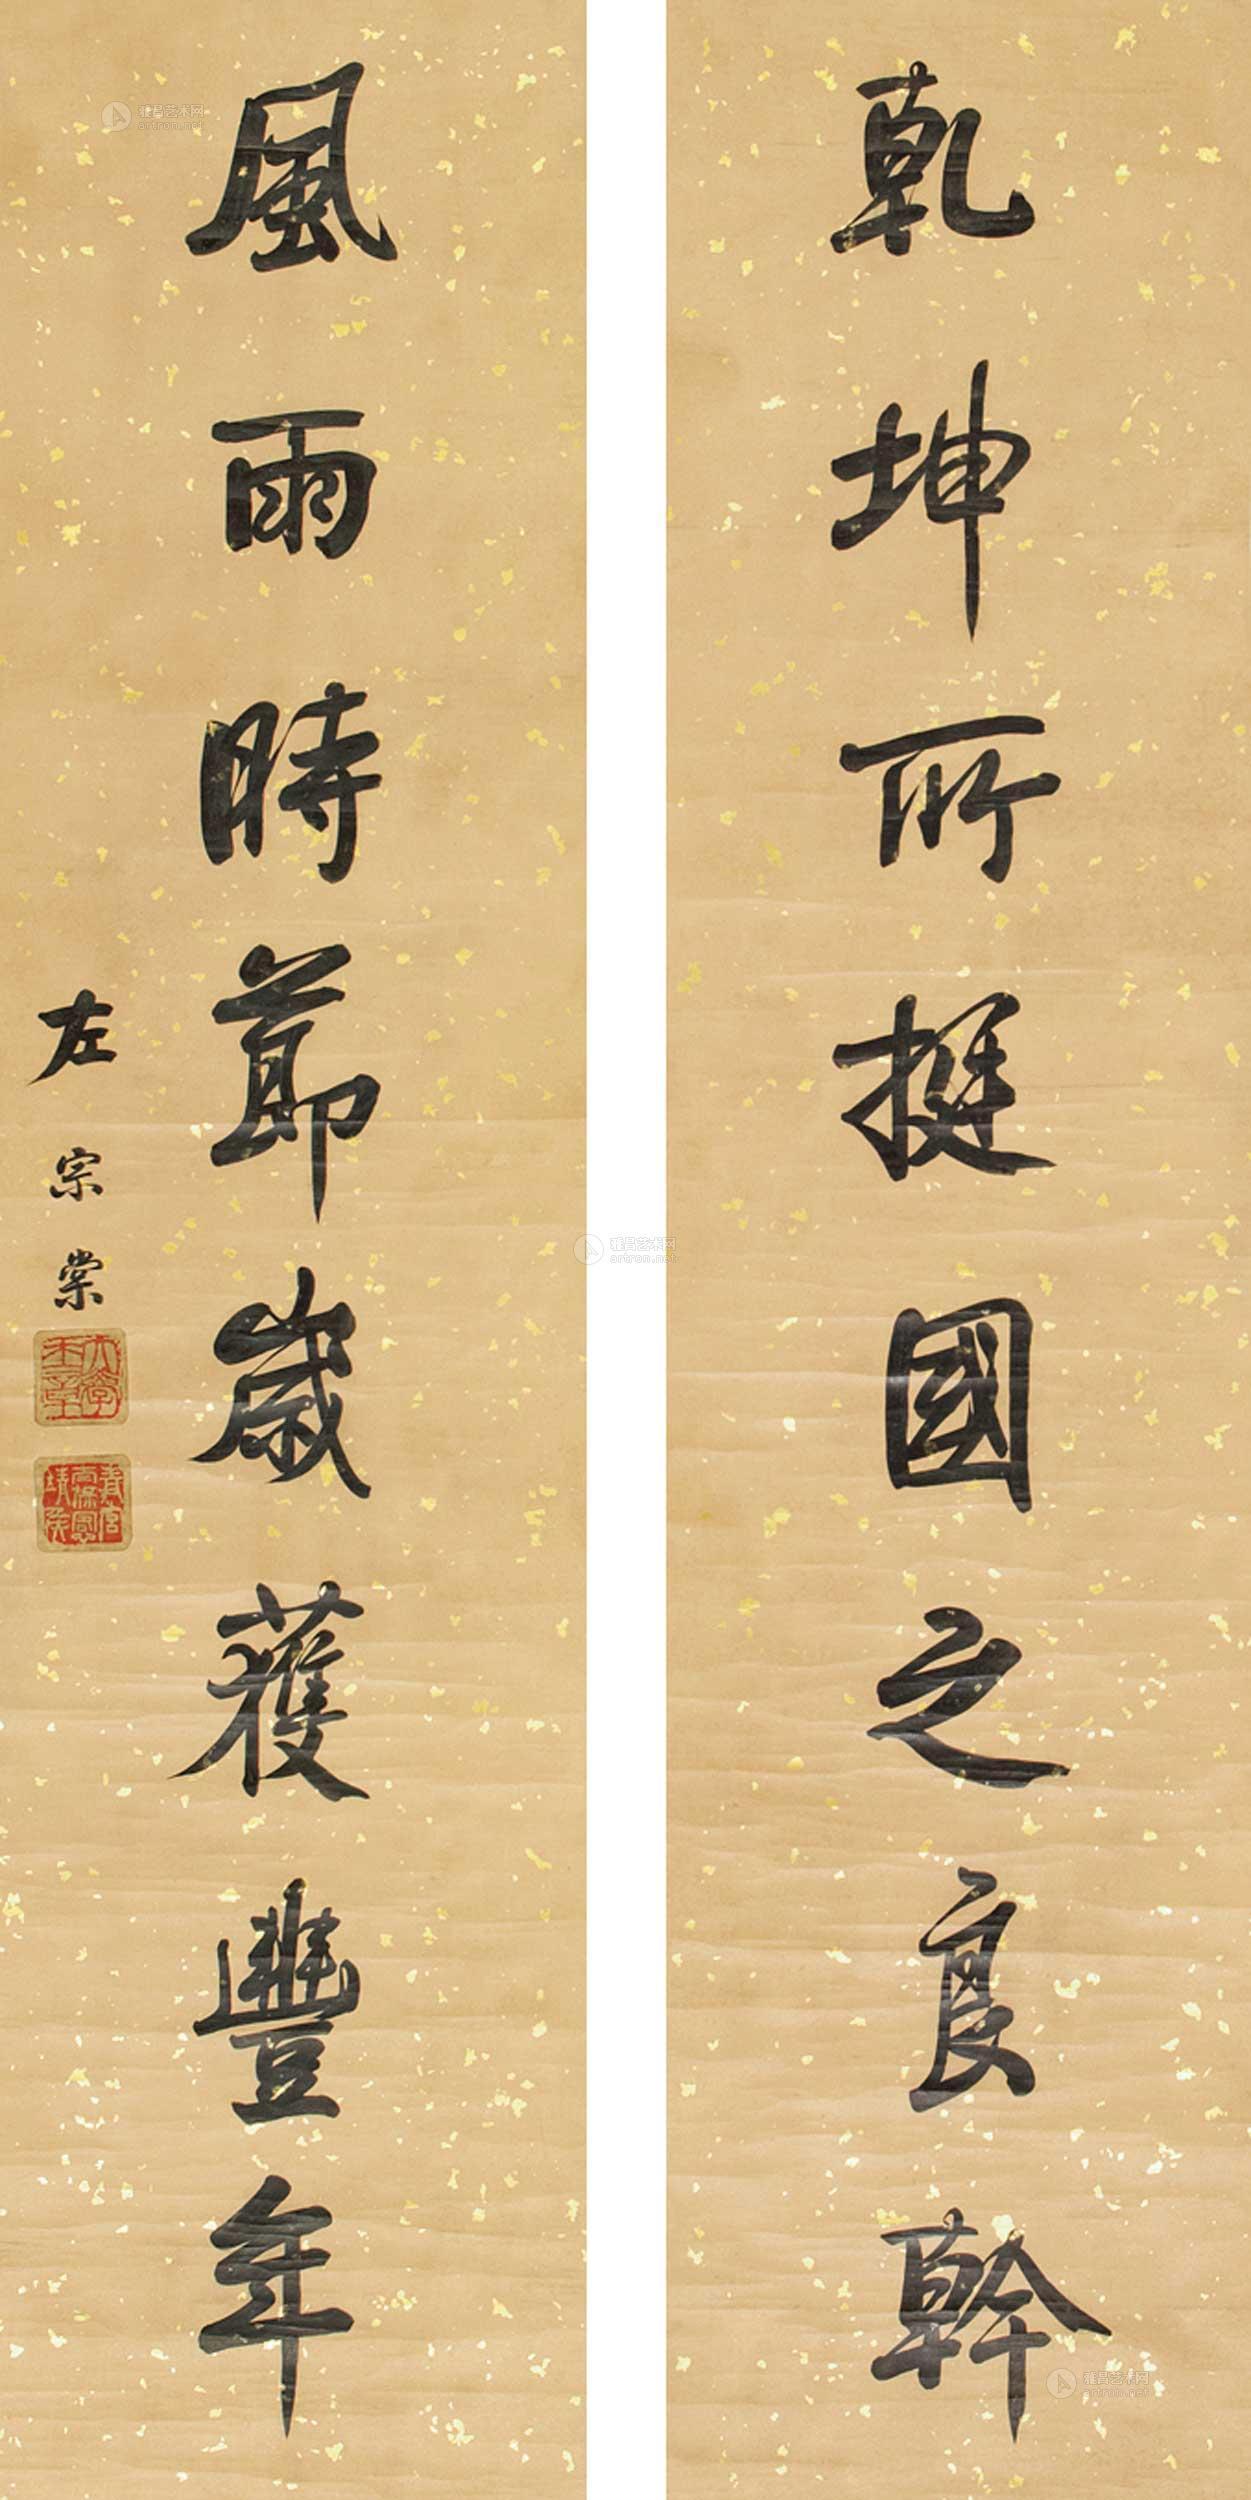 乾坤所挺國之良幹
風雨時節歲获豐年
左宗棠
大學士章
青宮太保恪靖侯
雅昌艺术网
artron.net
雅昌艺术网
artron.net
雅昌艺术网
artron.net